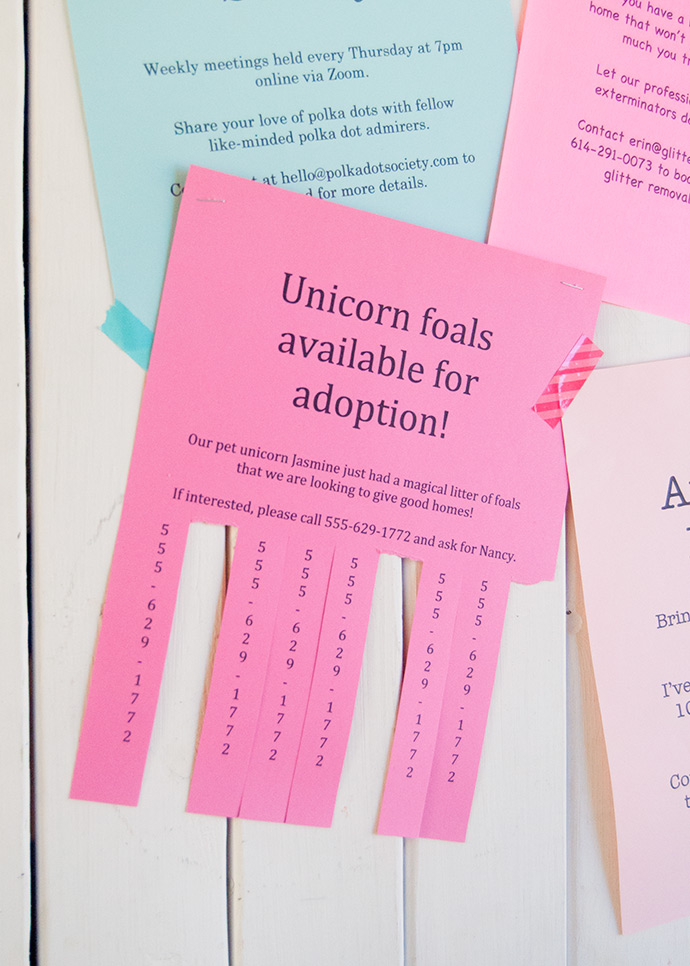 Weekly meetings held every Thursday at 7pm
online via Zoom.
Share your love of polka dots with fellow
like-minded polka dot admirers.
at hello@polkadotsociety.com to
for more details.
you have a
home that won't
much you
Let our
exterminators
Contact
614-291-0073 to
glitter
Unicorn foals
available for
adoption!
Our pet unicorn Jasmine just had a magical litter of foals
that we are looking to give good homes!
If interested, please call 555-629-1772 and ask for Nancy.
555-629-1772
555-629-1772
555-629-1772
555-629-1772
555-629-1772
555-629-1772
I've